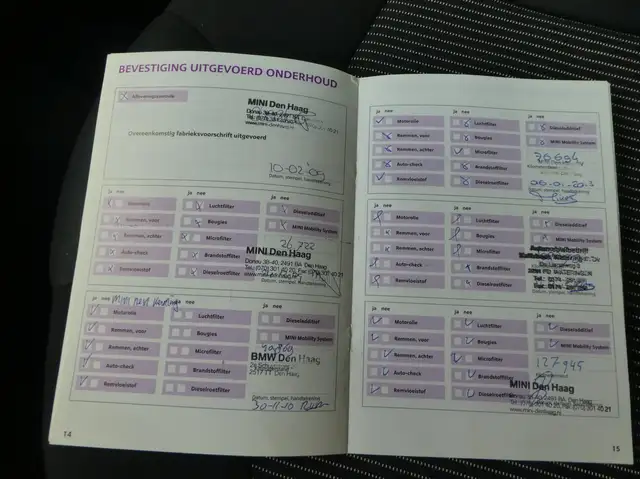 BEVESTIGING UITGEVOERD ONDERHOUD
Afleveringscontrole
MINI Den Haag
www.mini-denhaag.nl
Overeenkomstig fabrieksvoorschrift uitgevoerd
10-02-'09
Datum, stempel, handtekening
ja nee
ja nee
ja nee
Motorolie
Luchtfilter
Dieseladditief
Remmen, voor
Bougies
MINI Mobility System
Remmen, achter
Microfilter
26.722
Auto-check
Brandstoffilter
MINI Den Haag
Donau 38-40, 2491 BA Den Haag
Remvloeistof
Dieselroetfilter
www.mini-denhaag.nl
ja nee
ja nee
ja nee
Motorolie
Luchtfilter
Dieseladditief
Remmen, voor
Bougies
MINI Mobility System
Remmen, achter
Microfilter
BMW Den Haag
Auto-check
Brandstoffilter
Remvloeistof
Dieselroetfilter
Datum, stempel, handtekening
30-11-10
14
ja nee
ja nee
ja nee
Motorolie
Luchtfilter
Dieseladditief
Remmen, voor
Bougies
MINI Mobility System
Remmen, achter
Microfilter
Auto-check
Brandstoffilter
Remvloeistof
Dieselroetfilter
Datum, stempel, handtekening
ja nee
ja nee
ja nee
Motorolie
Luchtfilter
Dieseladditief
Remmen, voor
Bougies
MINI Mobility System
Remmen, achter
Microfilter
Auto-check
Brandstoffilter
Remvloeistof
Dieselroetfilter
Datum, stempel, handtekening
ja nee
ja nee
ja nee
Motorolie
Luchtfilter
Dieseladditief
Remmen, voor
Bougies
MINI Mobility System
Remmen, achter
Microfilter
127-945
Auto-check
Brandstoffilter
MINI Den Haag
Remvloeistof
Dieselroetfilter
www.mini-denhaag.nl
15